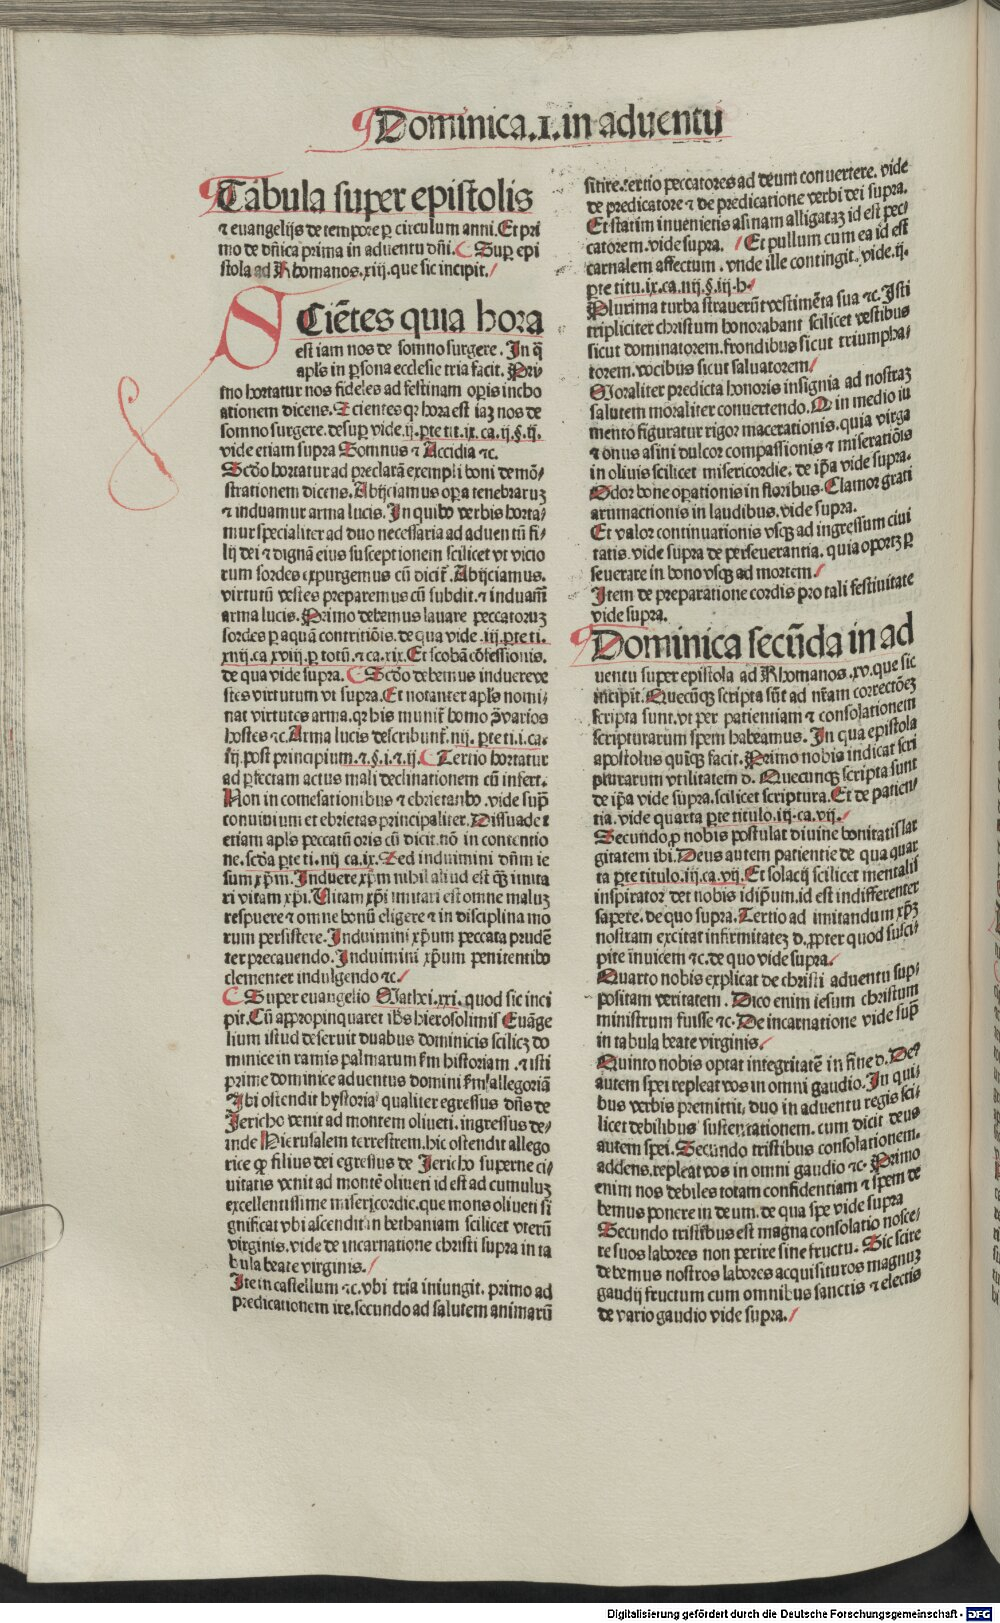 Dominica .I. in aduentu
Tabula super epistolis
⁊ euangelijs de tempore ꝑ circulum anni. Et pri
mo de dñica prima in aduentu dñi. Suꝑ epi
stola ad Rhomanos .xiij. que sic incipit.
SCiẽtes quia hora
est iam nos de somno surgere. In q̃
apl̃s in ꝑsona ecclesie tria facit. Pri
mo hortatur nos fideles ad festinam oꝑis incho
ationem dicens. Scientes qꝛ hora est iaꝫ nos de
somno surgere. desuꝑ vide .ij. ꝑte tit. ix. ca. ij. §. ij.
vide etiam supra Somnus ⁊ Accidia ⁊c.
Scd̃o hortatur ad preclarã exempli boni demõ-
strationem dicens. Abijciamus oꝑa tenebraruꝫ
⁊ induamur arma lucis. In quibꝰ verbis horta-
mur specialiter ad duo necessaria ad aduentũ fi-
lij dei ⁊ dignã eius susceptionem scilicet vt vicio
rum sordes expurgemus cũ dicit̃. Abijciamus.
virtutũ vestes preparemus cũ subdit. ⁊ induam̃
arma lucis. Primo debemus lauare peccatoruꝫ
sordes ꝑ aquã contritiõis. de qua vide .iij. ꝑte ti.
xiiij. ca xviij. ꝑ totũ. ⁊ ca. xix. Et scobã cõfessionis.
de qua vide supra. Scd̃o debemus induere ve
stes virtutum vt supra. Et notanter apl̃s nomi-
nat virtutes arma. qꝛ his munit̃ homo ↄ̃ varios
hostes ⁊c. Arma lucis describunt̃. iiij. ꝑte ti. i. ca.
iij. post principium. ⁊ §. i. ⁊ ij. Tertio hortatur
ad ꝑfectam actus mali declinationem cũ infert.
Non in comesationibus ⁊ ebrietanbꝰ. vide sup̃
conuiuium et ebrietas principaliter. Dissuadet
etiam apl̃s peccatũ oris cũ dicit. nõ in contentio
ne. scd̃a ꝑte ti. iiij ca. ix. Sed induimini dñm ie
sum xp̃m. Induere xp̃m nihil aliud est qꝫ imita
ri vitam xp̃i. Uitam xp̃i imitari est omne maluꝫ
respuere ⁊ omne bonũ eligere ⁊ in disciplina mo
rum persistere. Induimini xp̃um peccata prudẽ
ter precauendo. Induimini xp̃um penitentibꝰ
clementer indulgendo ⁊c.
Super euangelio Mathei. xxi. quod sic inci
pit. Cũ appropinquaret ih̃s hierosolimis Euãge
lium istud deseruit duabus dominicis scilicꝫ do
minice in ramis palmarum ẜm historiam. ⁊ isti
prime dominice aduentus domini ẜm allegoriã
Ibi ostendit hystoria qualiter egressus dñs de
Jericho venit ad montem oliueti. ingressus de-
inde Hierusalem terrestrem. hic ostendit allego
rice ꝙ filius dei egressus de Jericho superne ci-
uitatis venit ad montẽ oliueti id est ad cumuluꝫ
excellentissime misericordie. que mons oliueti si
gnificat vbi ascendit in bethaniam scilicet vterũ
virginis. vide de incarnatione christi supra in ta
bula beate virginis.
Ite in castellum ⁊c. vbi tria iniungit. primo ad
predicationem ire. secundo ad salutem animarũ
sitire. tertio peccatores ad deum conuertere. vide
de predicatore ⁊ de predicatione verbi dei supra.
Et statim inuenietis asinam alligataꝫ id est pec-
catorem. vide supra. Et pullum cum ea id est
carnalem affectum. vnde ille contingit. vide .ij.
ꝑte titu. ix. ca. iiij. §. iij. h.
Plurima turba strauerũt vestimẽta sua ⁊c. Isti
tripliciter christum honorabant scilicet vestibus
sicut dominatorem. frondibus sicut triumpha-
torem. vocibus sicut saluatorem
Moraliter predicta honoris insignia ad nostraꝫ
salutem moraliter conuertendo. Nam in medio iu
mento figuratur rigor macerationis. quia virga
⁊ onus asini dulcor compassionis ⁊ miseratiõis
in oliuis scilicet misericordie. de ip̃a vide supra.
Odor bone oꝑationis in floribus. Clamor grati
arumactionis in laudibus. vide supra.
Et valor continuationis vsqꝫ ad ingressum ciui
tatis. vide supra de perseuerantia. quia oportꝫ ꝑ
seuerare in bono vsqꝫ ad mortem
Item de preparatione cordis pro tali festiuitate
vide supra.
Dominica secũda in ad
uentu super epistola ad Rhomanos. xv. que sic
incipit. Quecũqꝫ scripta sũt ad nr̃am correctõeꝫ
scripta sunt. vt per patientiam ⁊ consolationem
scripturarum spem habeamus. In qua epistola
apostolus quĩqꝫ facit. Primo nobis indicat scri
pturarum vtilitatem d. Quecunqꝫ scripta sunt
de ip̃a vide supra. scilicet scriptura. Et de patien-
tia. vide quarta ꝑte titulo. iij. ca. vij.
Secundo ꝓ nobis postulat diuine bonitatis lar
gitatem ibi. Deus autem patientie de qua quar
ta ꝑte titulo. iij. ca. vij. Et solacij scilicet mentalis
inspirator det nobis idip̃um. id est indifferenter
sapere. de quo supra. Tertio ad imitandum xp̃ꝫ
nostram excitat infirmitateꝫ d. ꝓpter quod susci-
pite inuicem ⁊c. de quo vide supra.
Quarto nobis explicat de christi aduentu sup-
positam veritatem. Dico enim iesum christum
ministrum fuisse ⁊c. De incarnatione vide sup̃
in tabula beate virginis.
Quinto nobis optat integritatẽ in fine d. Deꝰ
autem spei repleat vos in omni gaudio. In qui-
bus verbis premittit, duo in aduentu regis sci-
licet debilibus sustentationem. cum dicit deus
autem spei. Secundo tristibus consolationem.
addens. repleat vos in omni gaudio ⁊c. Primo
enim nos debiles totam confidentiam ⁊ spem de
bemus ponere in deum. de qua spe vide supra
Secundo tristibus est magna consolatio nosce-
re suos labores non perire sine fructu. Sic scire
debemus nostros labores acquisituros magnuꝫ
gaudij fructum cum omnibus sanctis ⁊ electis
de vario gaudio vide supra.
Digitalisierung gefördert durch die Deutsche Forschungsgemeinschaft - DFG